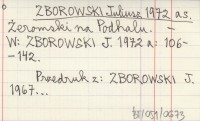 ZBOROWSKI Juliusz 1972 as.
Żeromski na Podhalu. —
W: ZBOROWSKI J. 1972 a: 106-
-142.
Przedruk z: ZBOROWSKI J.
1967...